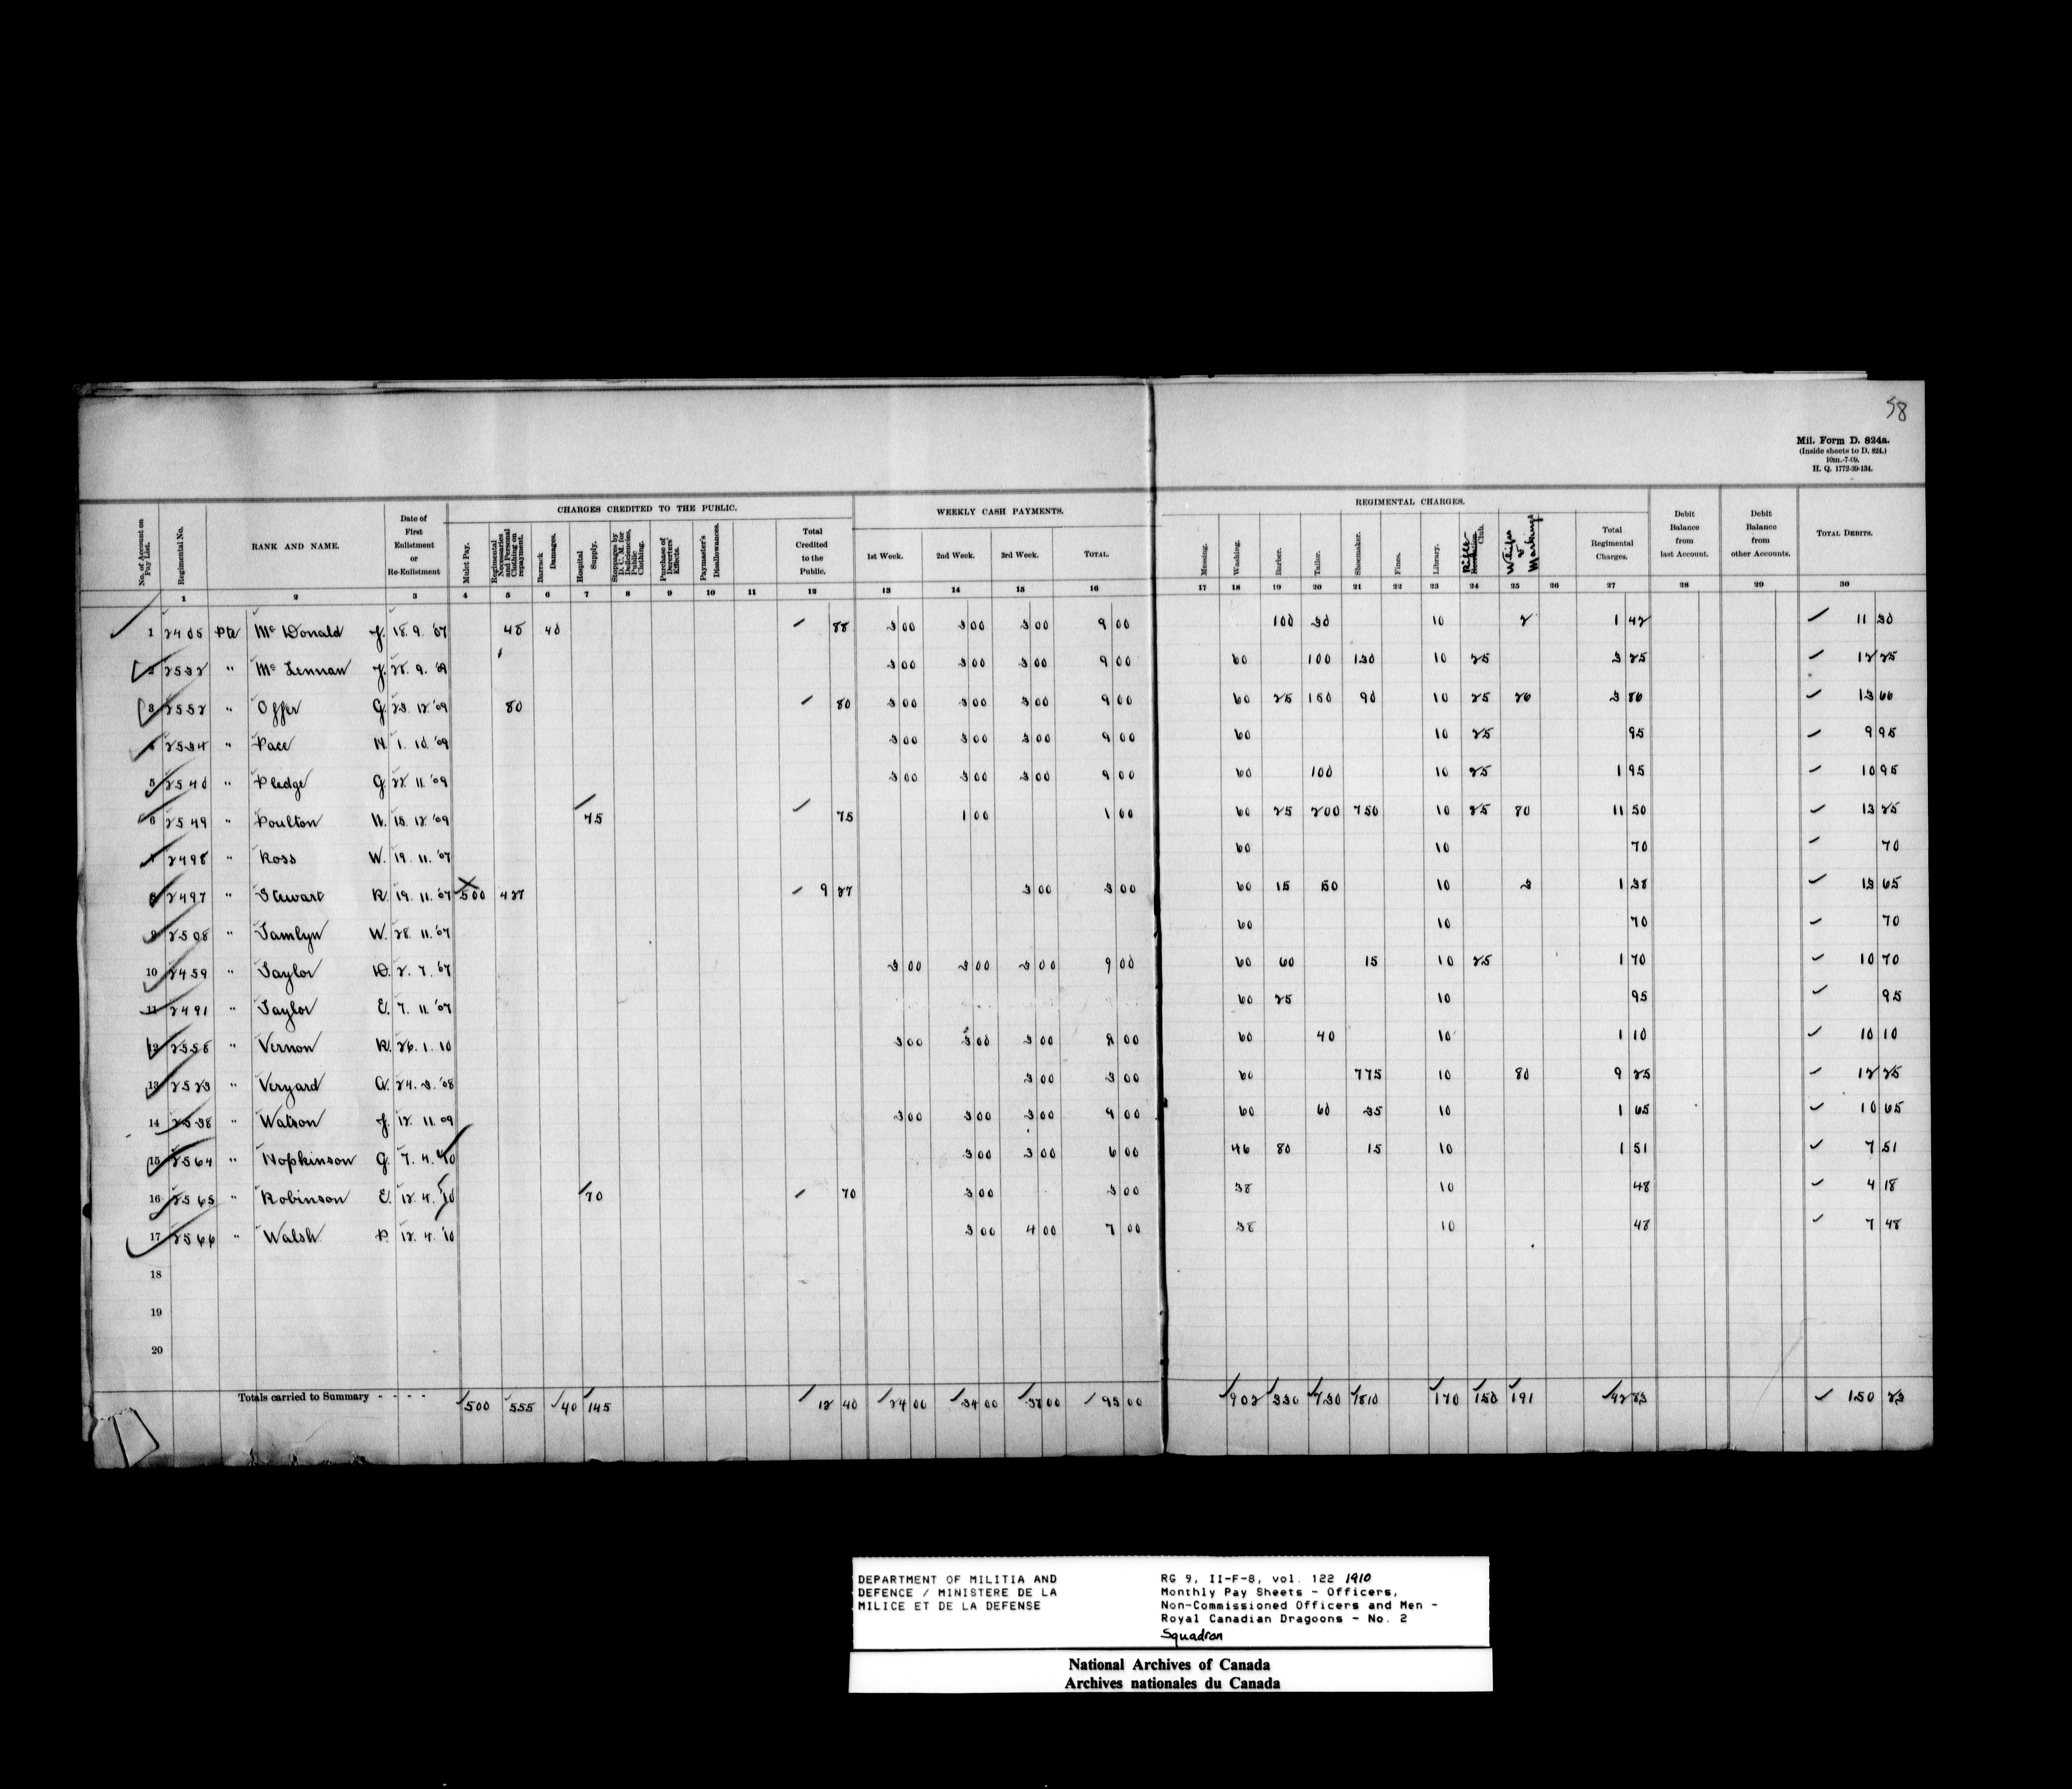 58
Mil. Form D. 824a.
(Inside sheets to D. 824.)
10m.-7-09.
H. Q. 1772-39-134.
No. of Account on Pay List. Regimental No. RANK AND NAME. Date of First Enlistment or Re-Enlistment CHARGES CREDITED TO THE PUBLIC. Mulct Pay. Regimental Necessaries and Personal Clothing on repayment. Barrack Damages. Hospital Supply. Stoppages by D. C. M. for Deficiencies, Public Clothing. Purchase of Deserters' Effects. Paymaster's Disallowances. Total Credited to the Public. WEEKLY CASH PAYMENTS. 1st Week. 2nd Week. 3rd Week. TOTAL. REGIMENTAL CHARGES. Messing. Washing. Barber. Tailor. Shoemaker. Fines. Library. Rifle Club. Waifes & Markings Total Regimental Charges. Debit Balance from last Account. Debit Balance from other Accounts. TOTAL DEBITS.
1 2 3 4 5 6 7 8 9 10 11 12 13 14 15 16 17 18 19 20 21 22 23 24 25 26 27 28 29 30
1 2405 Pte McDonald J. 18. 9. '07 48 40 88 3 00 3 00 3 00 9 00 100 30 10 2 1 42 11 30
2 2532 " McLennan J. 28. 9. '09 3 00 3 00 3 00 9 00 60 100 130 10 25 3 25 12 25
3 2552 " Offer G. 23. 12. '09 80 80 3 00 3 00 3 00 9 00 60 25 150 90 10 25 26 3 86 13 66
4 2534 " Pace H. 1. 10. '09 3 00 3 00 3 00 9 00 60 10 25 95 9 95
5 2540 " Pledge G. 22. 11. '09 3 00 3 00 3 00 9 00 60 100 10 25 1 95 10 95
6 2549 " Poulton H. 15. 12. '09 75 75 1 00 1 00 60 25 200 750 10 25 80 11 50 13 25
7 2498 " Ross W. 19. 11. '07 60 10 70 70
8 2497 " Stewart R. 19. 11. '07 500 427 9 27 3 00 3 00 60 15 50 10 3 1 38 13 65
9 2508 " Tamlyn W. 28. 11. '07 60 10 70 70
10 2459 " Taylor D. 2. 7. '07 3 00 3 00 3 00 9 00 60 60 15 10 25 1 70 10 70
11 2491 " Taylor E. 7. 11. '07 60 25 10 95 95
12 2558 " Vernon R. 26. 1. 10 3 00 3 00 3 00 9 00 60 40 10 1 10 10 10
13 2523 " Veryard A. 24. 3. '08 3 00 3 00 60 775 10 80 9 25 12 25
14 2538 " Watson J. 12. 11. 09 3 00 3 00 3 00 9 00 60 60 35 10 1 65 10 65
15 2564 " Hopkinson G. 7. 4. '10 3 00 3 00 6 00 46 80 15 10 1 51 7 51
16 2565 " Robinson E. 12. 4. '10 70 70 3 00 3 00 38 10 48 4 18
17 2566 " Walsh P. 12. 4. '10 3 00 4 00 7 00 38 10 48 7 48
18
19
20
Totals carried to Summary - - - - 500 555 40 145 12 40 24 00 34 00 37 00 95 00 902 330 730 1810 170 150 191 42 83 150 23
DEPARTMENT OF MILITIA AND
DEFENCE / MINISTERE DE LA
MILICE ET DE LA DEFENSE
RG 9, II-F-8, vol. 122 1910
Monthly Pay Sheets - Officers,
Non-Commissioned Officers and Men -
Royal Canadian Dragoons - No. 2
Squadron
National Archives of Canada
Archives nationales du Canada